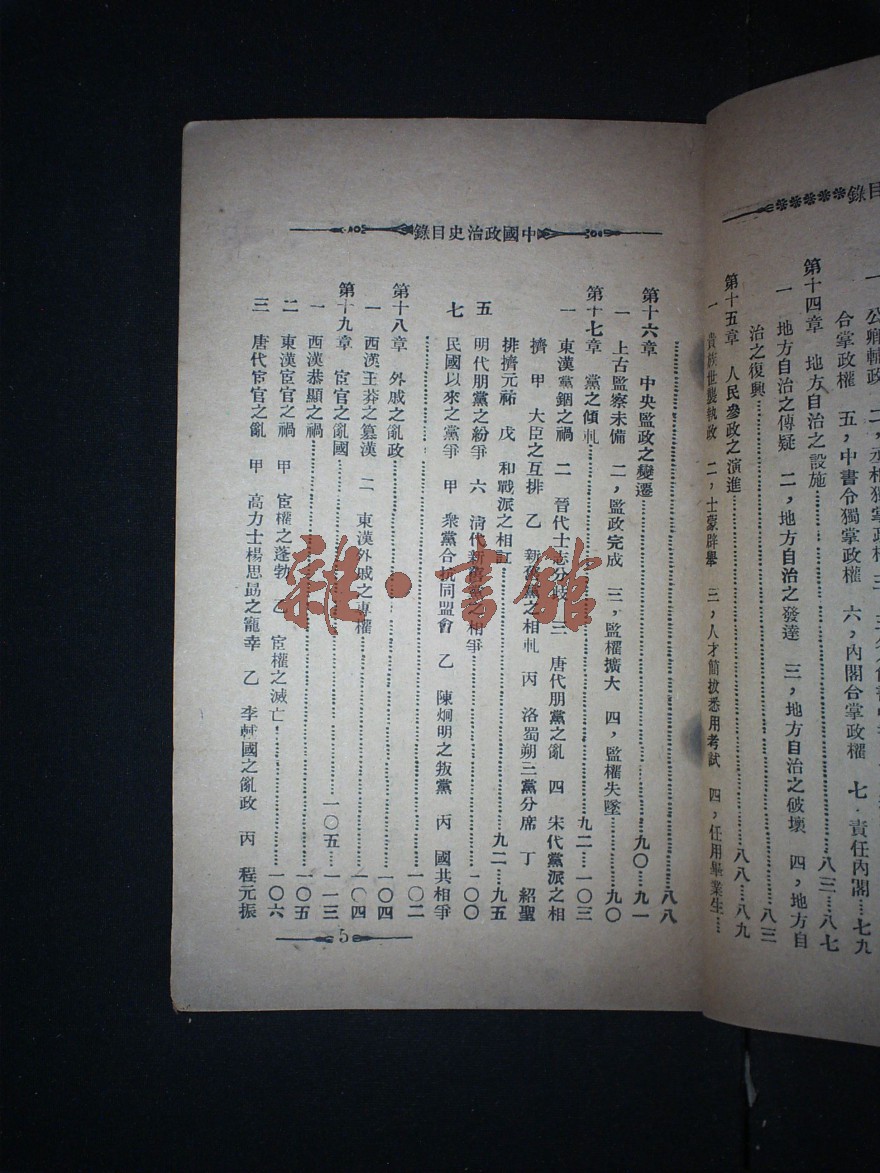 目錄
一 公卿輔政 二，丞相獨掌政權 三，
合掌政權 五，中書令獨掌政權 六，內閣合掌政權 七．責任內閣…七九
第十四章 地方自治之設施…八三…八七
一 地方自治之傳疑 二，地方自治之發達 三，地方自治之破壞 四，地方自
治之復興…八三
第十五章 人民參政之演進…八八…八九
一 貴族世襲執政 二，士蒙辟舉 三，人才簡拔悉用考試 四，任用畢業生…
中國政治史目錄
…八八
第十六章 中央監政之變遷…九〇…九一
一 上古監察未備 二，監政完成 三，監權擴大 四，監權失墜…九〇
第十七章 黨之傾軋…九二…一〇三
一 東漢黨錮之禍 二 晉代士志分歧 三 唐代朋黨之亂 四 宋代黨派之相
擠 甲 大臣之互排 乙 新舊黨之相軋 丙 洛蜀朔三黨分席 丁 紹聖
排擠元祐 戊 和戰派之相訌…九二…九五
五 明代朋黨之紛爭 六 清代新舊黨之相爭…一〇〇
七 民國以來之黨爭 甲 衆黨合抗同盟會 乙 陳烱明之叛黨 丙 國共相爭
…一〇二
第十八章 外戚之亂政…一〇四
一 西漢王莽之簒漢 二 東漢外戚之專權…一〇四
第十九章 宦官之亂國…一〇五…一一三
一 西漢恭顯之禍…一〇五
二 東漢宦官之禍 甲 宦權之蓬勃 乙 宦權之滅亡…一〇六
三 唐代宦官之亂 甲 高力士楊思勗之寵幸 乙 李輔國之亂政 丙 程元振
5
雜·書館